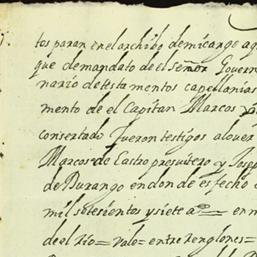 tos paran en el archibo de mi cargo a q
que demandato de el señor Govern
nario de testamentos capellanias
mento de el Capitan Marcos
consertado fueron testigos alo ver
Marcos de Castro presvitero y Josep
de Durango en don de es fecho
mil setesientos y siete aos = en m
de el Rio = vale = entre renglones =